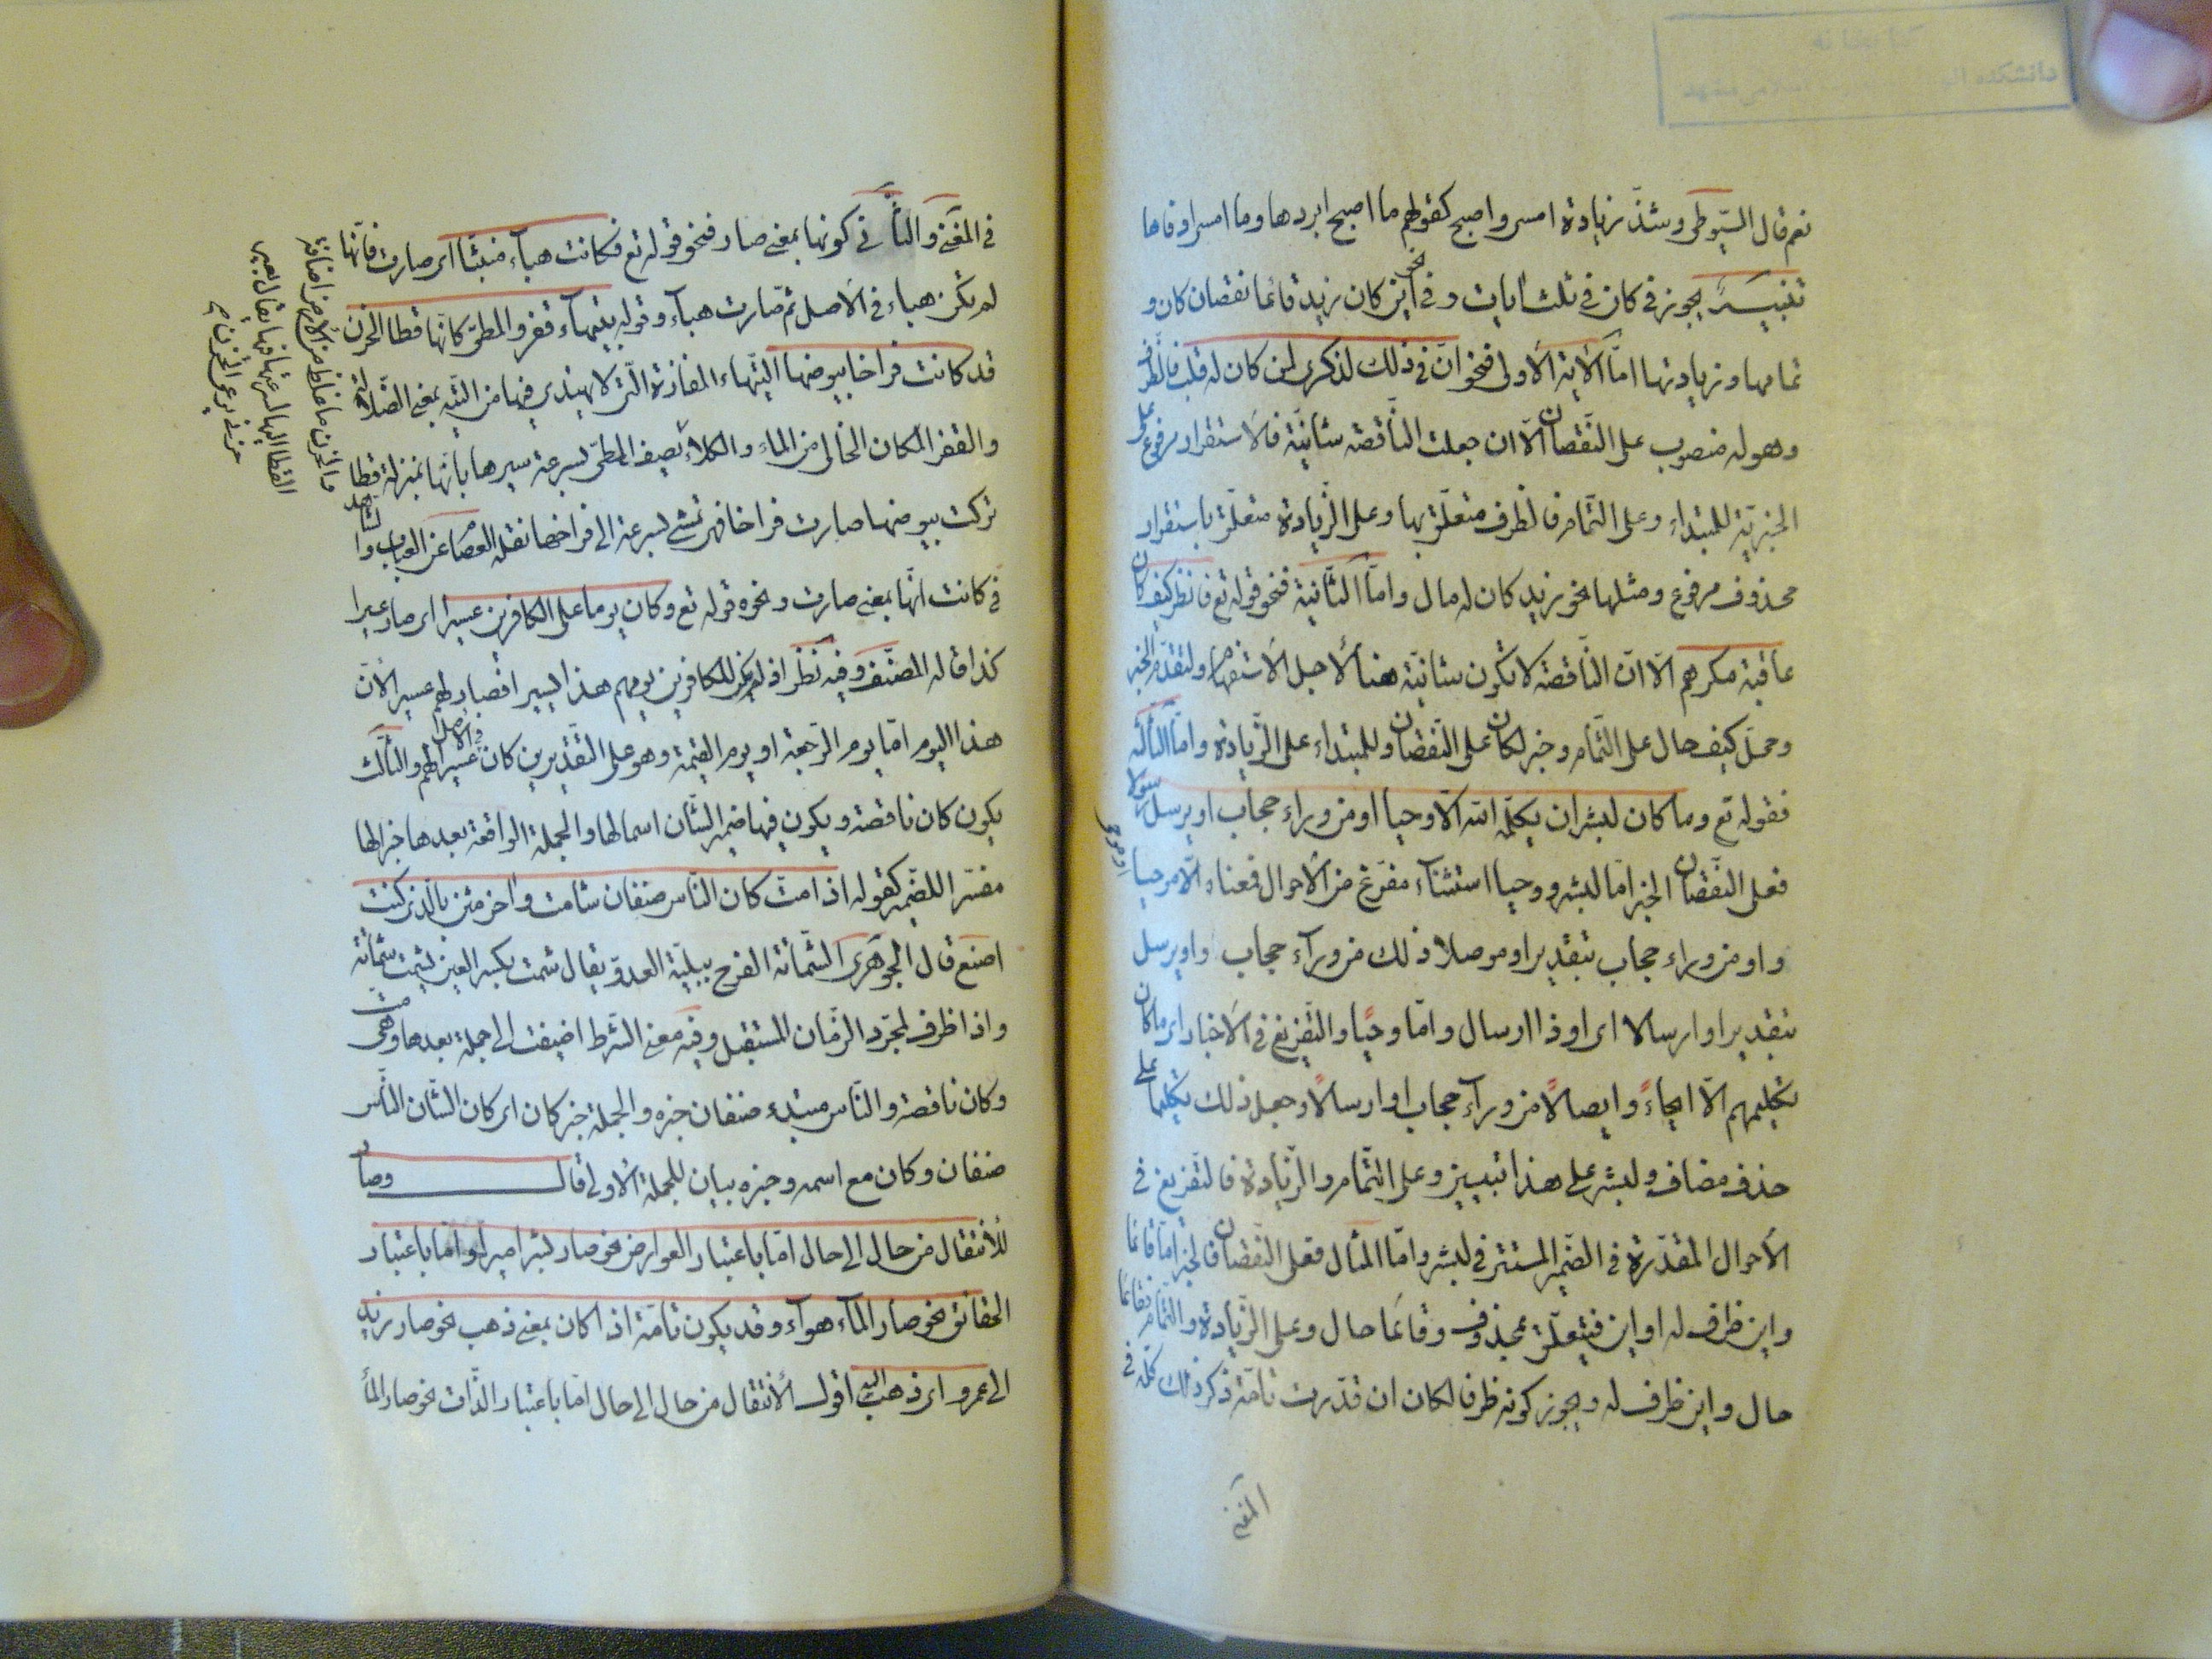 نعم قال السّيوطى وشذّ زيادة امسى واصبح كقولهم ما اصبح ابردها وما امسى ادفاها
تنبيه يجوز فى كان فى ثلث ايات وفى نحو اين كان زيد قائما نقصان كان و
تمامها وزيادتها امّا الاية الاولى فنحو انّ فى ذلك لذكرى لمن كان له قلب فالظرف
وهو له منصوب على النّقصان الّا ان جعلت النّاقصة شانيّة فالاستقرار مرفوع على
الخبريّة للمبتداء وعلى التّمام فالظرف متعلّق بها وعلى الزّيادة متعلّق باستقرار
محذوف مرفوع ومثلها نحو زيد كان له مال وامّا الثّانية فنحو قوله تع فانظر كيف كان
عاقبة مكرهم الّا انّ النّاقصة لا تكون شانيّة هنا لاجل الاستفهام ولتقدّم الخبر
وحمل كيف حال على التّمام وخبر لكان على النّقصان وللمبتداء على الزّيادة وامّا الثالثة
فقوله تع وما كان لبشر ان يكلّمه الله الّا وحيا او من وراء حجاب او يرسل رسولا
فعلى النّقصان الخبر امّا لبشر ووحيا استثناء مفرّغ من الاحوال فمعناه الّا موحيا
او من وراء حجاب بتقدير او موصلا ذلك من وراء حجاب او يرسل
بتقدير او ارسالا اى او ذا ارسال وامّا وحيا والتّفريغ فى الاخبار اى ما كان
تكليمهم الّا ايحاءً وايصالًا من وراء حجاب او ارسالًا وجعل ذلك تكليما على
حذف مضاف ولبشر على هذا تبيين وعلى التّمام والزّيادة فالتّفريغ فى
الاحوال المقدّرة فى الضّمير المستتر فى لبشر وامّا المثال فعلى النّقصان فالخبر امّا قائما
واين ظرف له او اين فيتعلّق بمحذوف وقائما حال وعلى الزّيادة والتّمام فقائما
حال واين ظرف له ويجوز كونه ظرفا لكان ان قدّرت تامّة ذكر ذلك كلّه فى
المغنى
فى المغنى والثانى فى كونها بمعنى صار فنحو قوله تع فكانت هباء منبثّا اى صارت فانّها
لم تكن هباء فى الاصل ثمّ صارت هباء وقوله بتيهاء قفر والمطىّ كانّها قطا الحزن
قد كانت فراخا بيوضها التيهاء المفازة الّتى لا يهتدى فيها من التّيه بمعنى الضّلالة
والقفر المكان الخالى من الماء والكلاء يصف المطىّ لسرعة سيرها بانّها بمنزلة قطا
تركت بيوضها صارت فراخا فهى تمشى لسرعة الى فراخها نقله العصام عن العباب والشاهد
فى كانت انّها بمعنى صارت ونحوه قوله تع وكان يوما على الكافرين عسيرا اى صار عسيرا
كذا قاله المصنّف وفيه نظر اذ لم يكن للكافرين يومهم هذا اليسير فصار لهم عسيرا لانّ
هذا اليوم امّا يوم الرّجعة او يوم القيمة وهو على التّقديرين كان عسيرا لهم والثّالث
يكون كان ناقصة ويكون فيها ضمير الشّان اسما لها والجملة الواقعة بعدها خبرا لها
مفسّرا للضّمير كقوله اذا متّ كان النّاس صنفان شامت واخر مثن بالّذى كنت
اصنع قال الجوهرى الشّماتة الفرح ببليّة العدوّ يقال شمت بكسر العين يشمت شماتة
واذا ظرف لمجرّد الزّمان المستقبل وفيه معنى الشّرط اضيفت الى جملة بعدها وهى متّ
وكان ناقصة والنّاس مبتدء صنفان خبره والجملة خبر كان اى كان الشّان النّاس
صنفان وكان مع اسمه وخبره بيان للجملة الاولى قال وصار
للانتقال من حال الى حال امّا باعتبار العوارض نحو صار بشر اميرا وامّا باعتبار
الحقائق نحو صار الماء هواء وقد يكون تامّة اذا كان بمعنى ذهب نحو صار زيد
الى عمرو اى ذهب اليه اقول الانتقال من حال الى حال امّا باعتبار الذّات نحو صار الماء
والحزن ما غلظ من الارض اضافة
القطا اليها